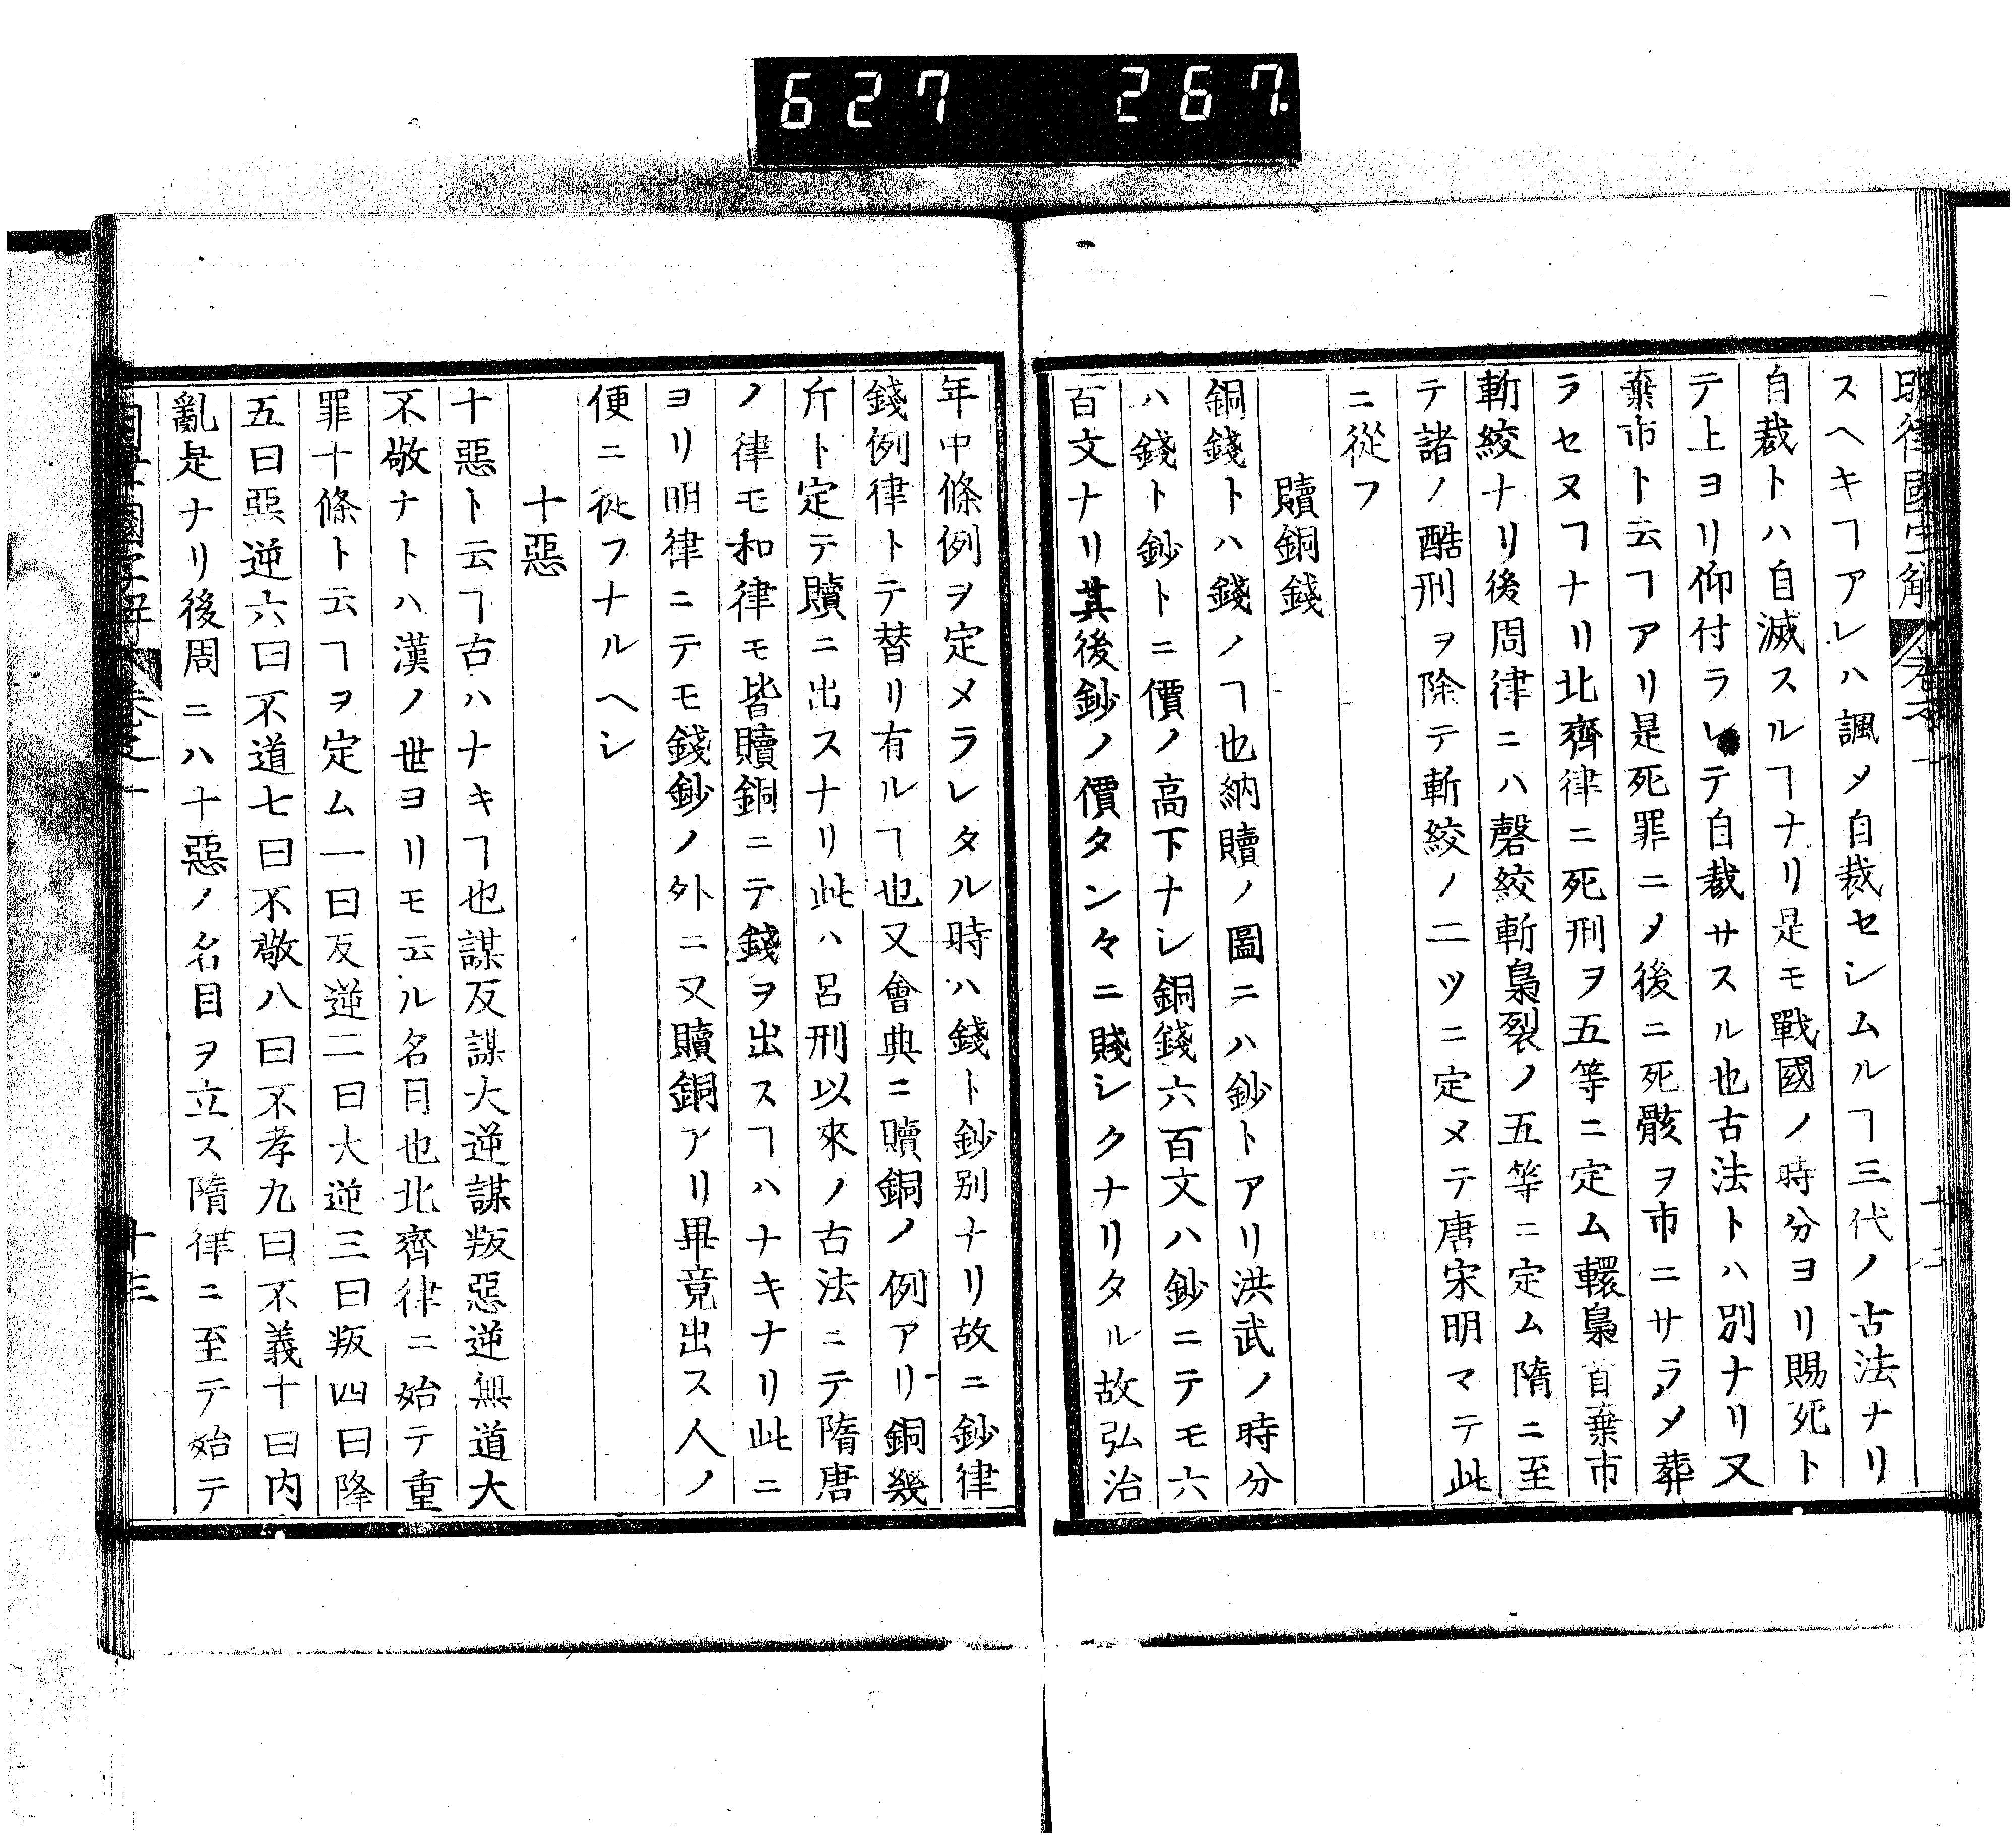 627 267
明律國字解
スヘキヿアレハ諷メ自裁セシムルヿ三代ノ古法ナリ
自裁トハ自滅スルヿナリ是モ戰國ノ時分ヨリ賜死ト
テ上ヨリ仰付ラレテ自裁サスル也古法トハ別ナリ又
棄市ト云ヿアリ是死罪ニメ後ニ死骸ヲ市ニサラメ葬
ラセヌヿナリ北齊律ニ死刑ヲ五等ニ定ム轘梟首棄市
斬絞ナリ後周律ニハ磬絞斬梟裂ノ五等ニ定ム隋ニ至
テ諸ノ酷刑ヲ除テ斬絞ノ二ツニ定メテ唐宋明マテ此
ニ從フ
贖銅錢
銅錢トハ錢ノヿ也納贖ノ圖ニハ鈔トアリ洪武ノ時分
ハ錢ト鈔トニ價ノ高下ナシ銅錢六百文ハ鈔ニテモ六
百文ナリ其後鈔ノ價タン々ニ賤シクナリタル故弘治
年中條例ヲ定メラレタル時ハ錢ト鈔別ナリ故ニ鈔律
錢例律トテ替リ有ルヿ也又會典ニ贖銅ノ例アリ銅幾
斤ト定テ贖ニ出スナリ此ハ呂刑以來ノ古法ニテ隋唐
ノ律モ和律モ皆贖銅ニテ錢ヲ出スヿハナキナリ此ニ
ヨリ明律ニテモ錢鈔ノ外ニ又贖銅アリ畢竟出ス人ノ
便ニ從フナルヘシ
十惡
十惡ト云ヿ古ハナキヿ也謀反謀大逆謀叛惡逆無道大
不敬ナトハ漢ノ世ヨリモ云ル名目也北齊律ニ始テ重
罪十條ト云ヿヲ定ム一曰反逆二曰大逆三曰叛四曰降
五曰惡逆六曰不道七曰不敬八曰不孝九曰不義十曰内
亂是ナリ後周ニハ十惡ノ名目ヲ立ス隋律ニ至テ始テ
十三